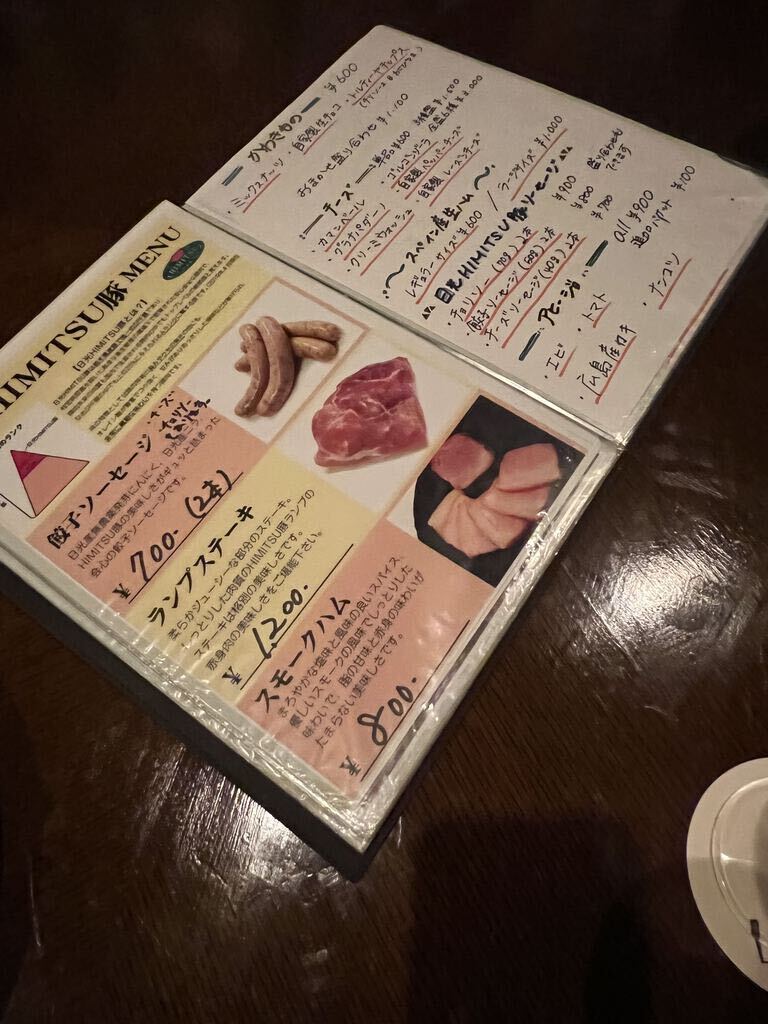 HIMITSU豚 MENU
HIMITSU
【日光HIMITSU豚とは？】
餃子ソーセージ
・チーズ
・チョリソー
もあります。
日光産無農薬発芽にんにく、日光
HIMITSU豚の美味しさがギュッと詰まった
会心の餃子ソーセージです。
¥ 700- (2本)
ランプステーキ
柔らかジューシーな部分のステーキ。
しっとりした肉質のHIMITSU豚ランプの
ステーキは格別の美味しさです。
赤身肉の美味しさをご堪能下さい。
¥ 1,200.
スモークハム
まろやかな塩味と風味の良いスパイス、
優しいスモークの風味でしっとりした
味わいで、脂の甘味と赤身の味わいが
たまらない美味しさです。
¥ 800-
かわきもの ¥600
・ミックスナッツ ・自家製生チョコ ・トルティーヤチップス
おまかせ盛り合わせ ¥1,100
チーズ 単品¥600 3種盛 ¥1,500
カマンベール ・ゴルゴンゾーラ
・グラナパダーノ 自家製ペッパーチーズ
・クリーミーウォッシュ 自家製レーズンチーズ
〜スペイン産生ハム〜
レギュラーサイズ ¥600 / ラージサイズ ¥1,000
日光HIMITSU豚ソーセージ
・チョリソー (70g) 2本 ¥900
・餃子ソーセージ (60g) 2本 ¥800
・チーズソーセージ (40g) 2本 ¥700
盛り合わせも
できます
アヒージョ all ¥900
追加バゲット ¥100
・エビ ・トマト ・ナンコツ
・広島産カキ